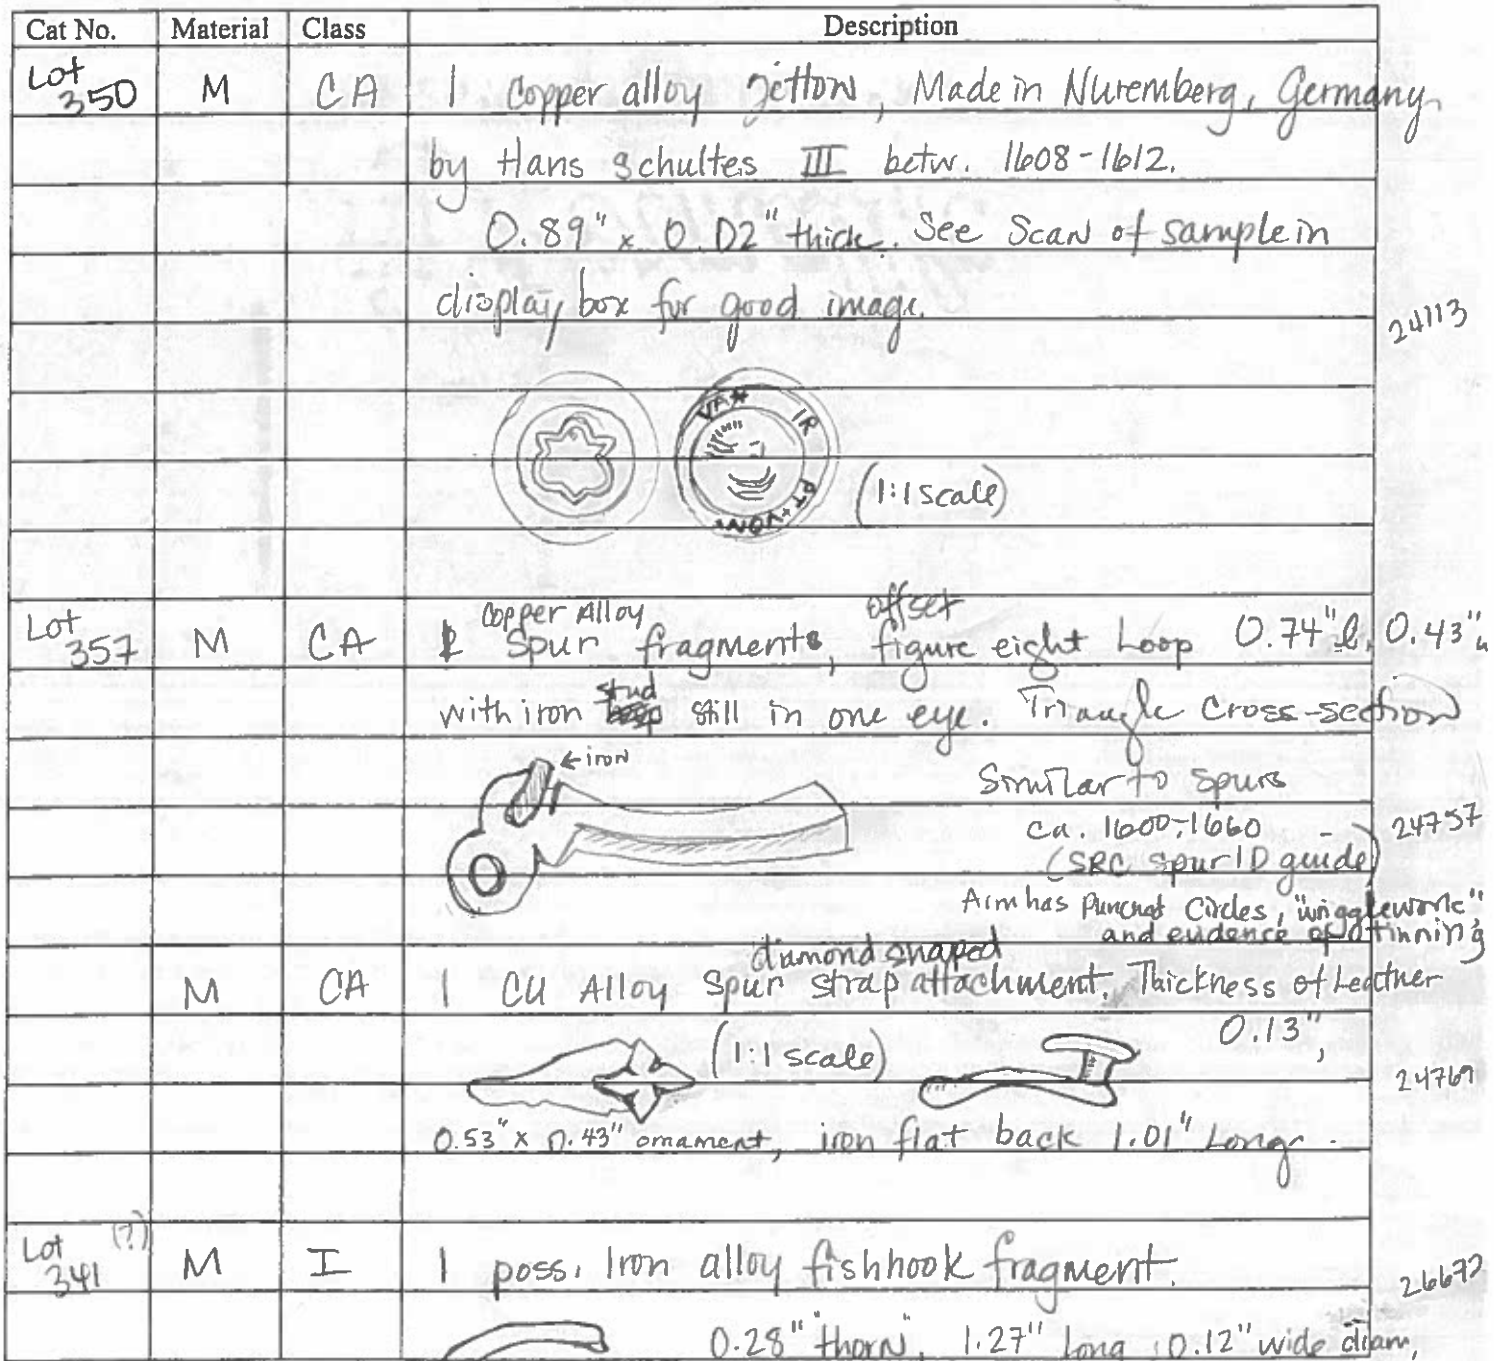 Cat No. Material Class Description
Lot 350 M CA 1 Copper alloy Jetton, Made in Nuremberg, Germany,
by Hans Schultes III betw. 1608-1612.
0.89" x 0.02" thick. See Scan of sample in
display box for good image.
24113
VA* IR PT+VONA
(1:1 scale)
Copper Alloy offset
Lot 357 M CA 1 Spur fragment, figure eight Loop 0.74" l. 0.43" w
stud
with iron still in one eye. Triangle Cross-section
←iron
Similar to spurs
ca. 1600-1660 - 24757
(SRC Spur ID guide)
Arm has Punchd Circles, "wrigglework",
and evidence of tinning
diamond shaped
M CA 1 CU Alloy Spur strap attachment, Thickness of Leather
0.13",
(1:1 scale)
24769
0.53" x 0.43" ornament, iron flat back 1.01" Long.
Lot (?) 341 M I 1 poss. Iron alloy fishhook fragment.
26672
0.28" "thorn", 1.27" long, 0.12" wide diam,